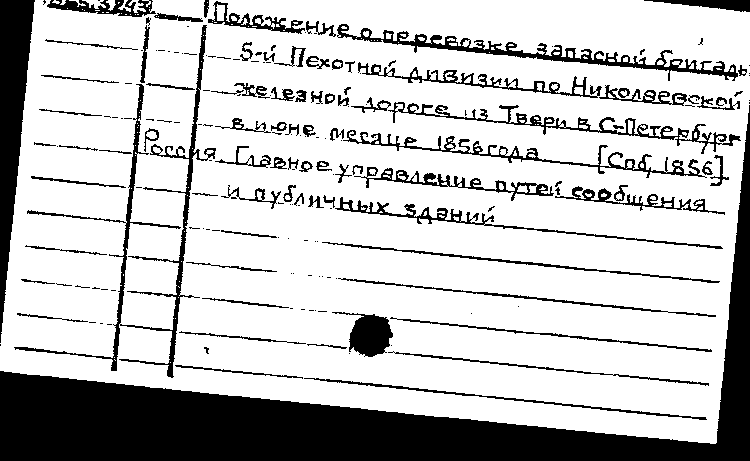 Положение о перевозке запасной бригады
5-й Пехотной дивизии по Николаевской
железной дороге из Твери в С-Петербург
в июне месяце 1856 года [Спб, 1856]
Россия. Главное управление путей сообщения
и публичных зданий